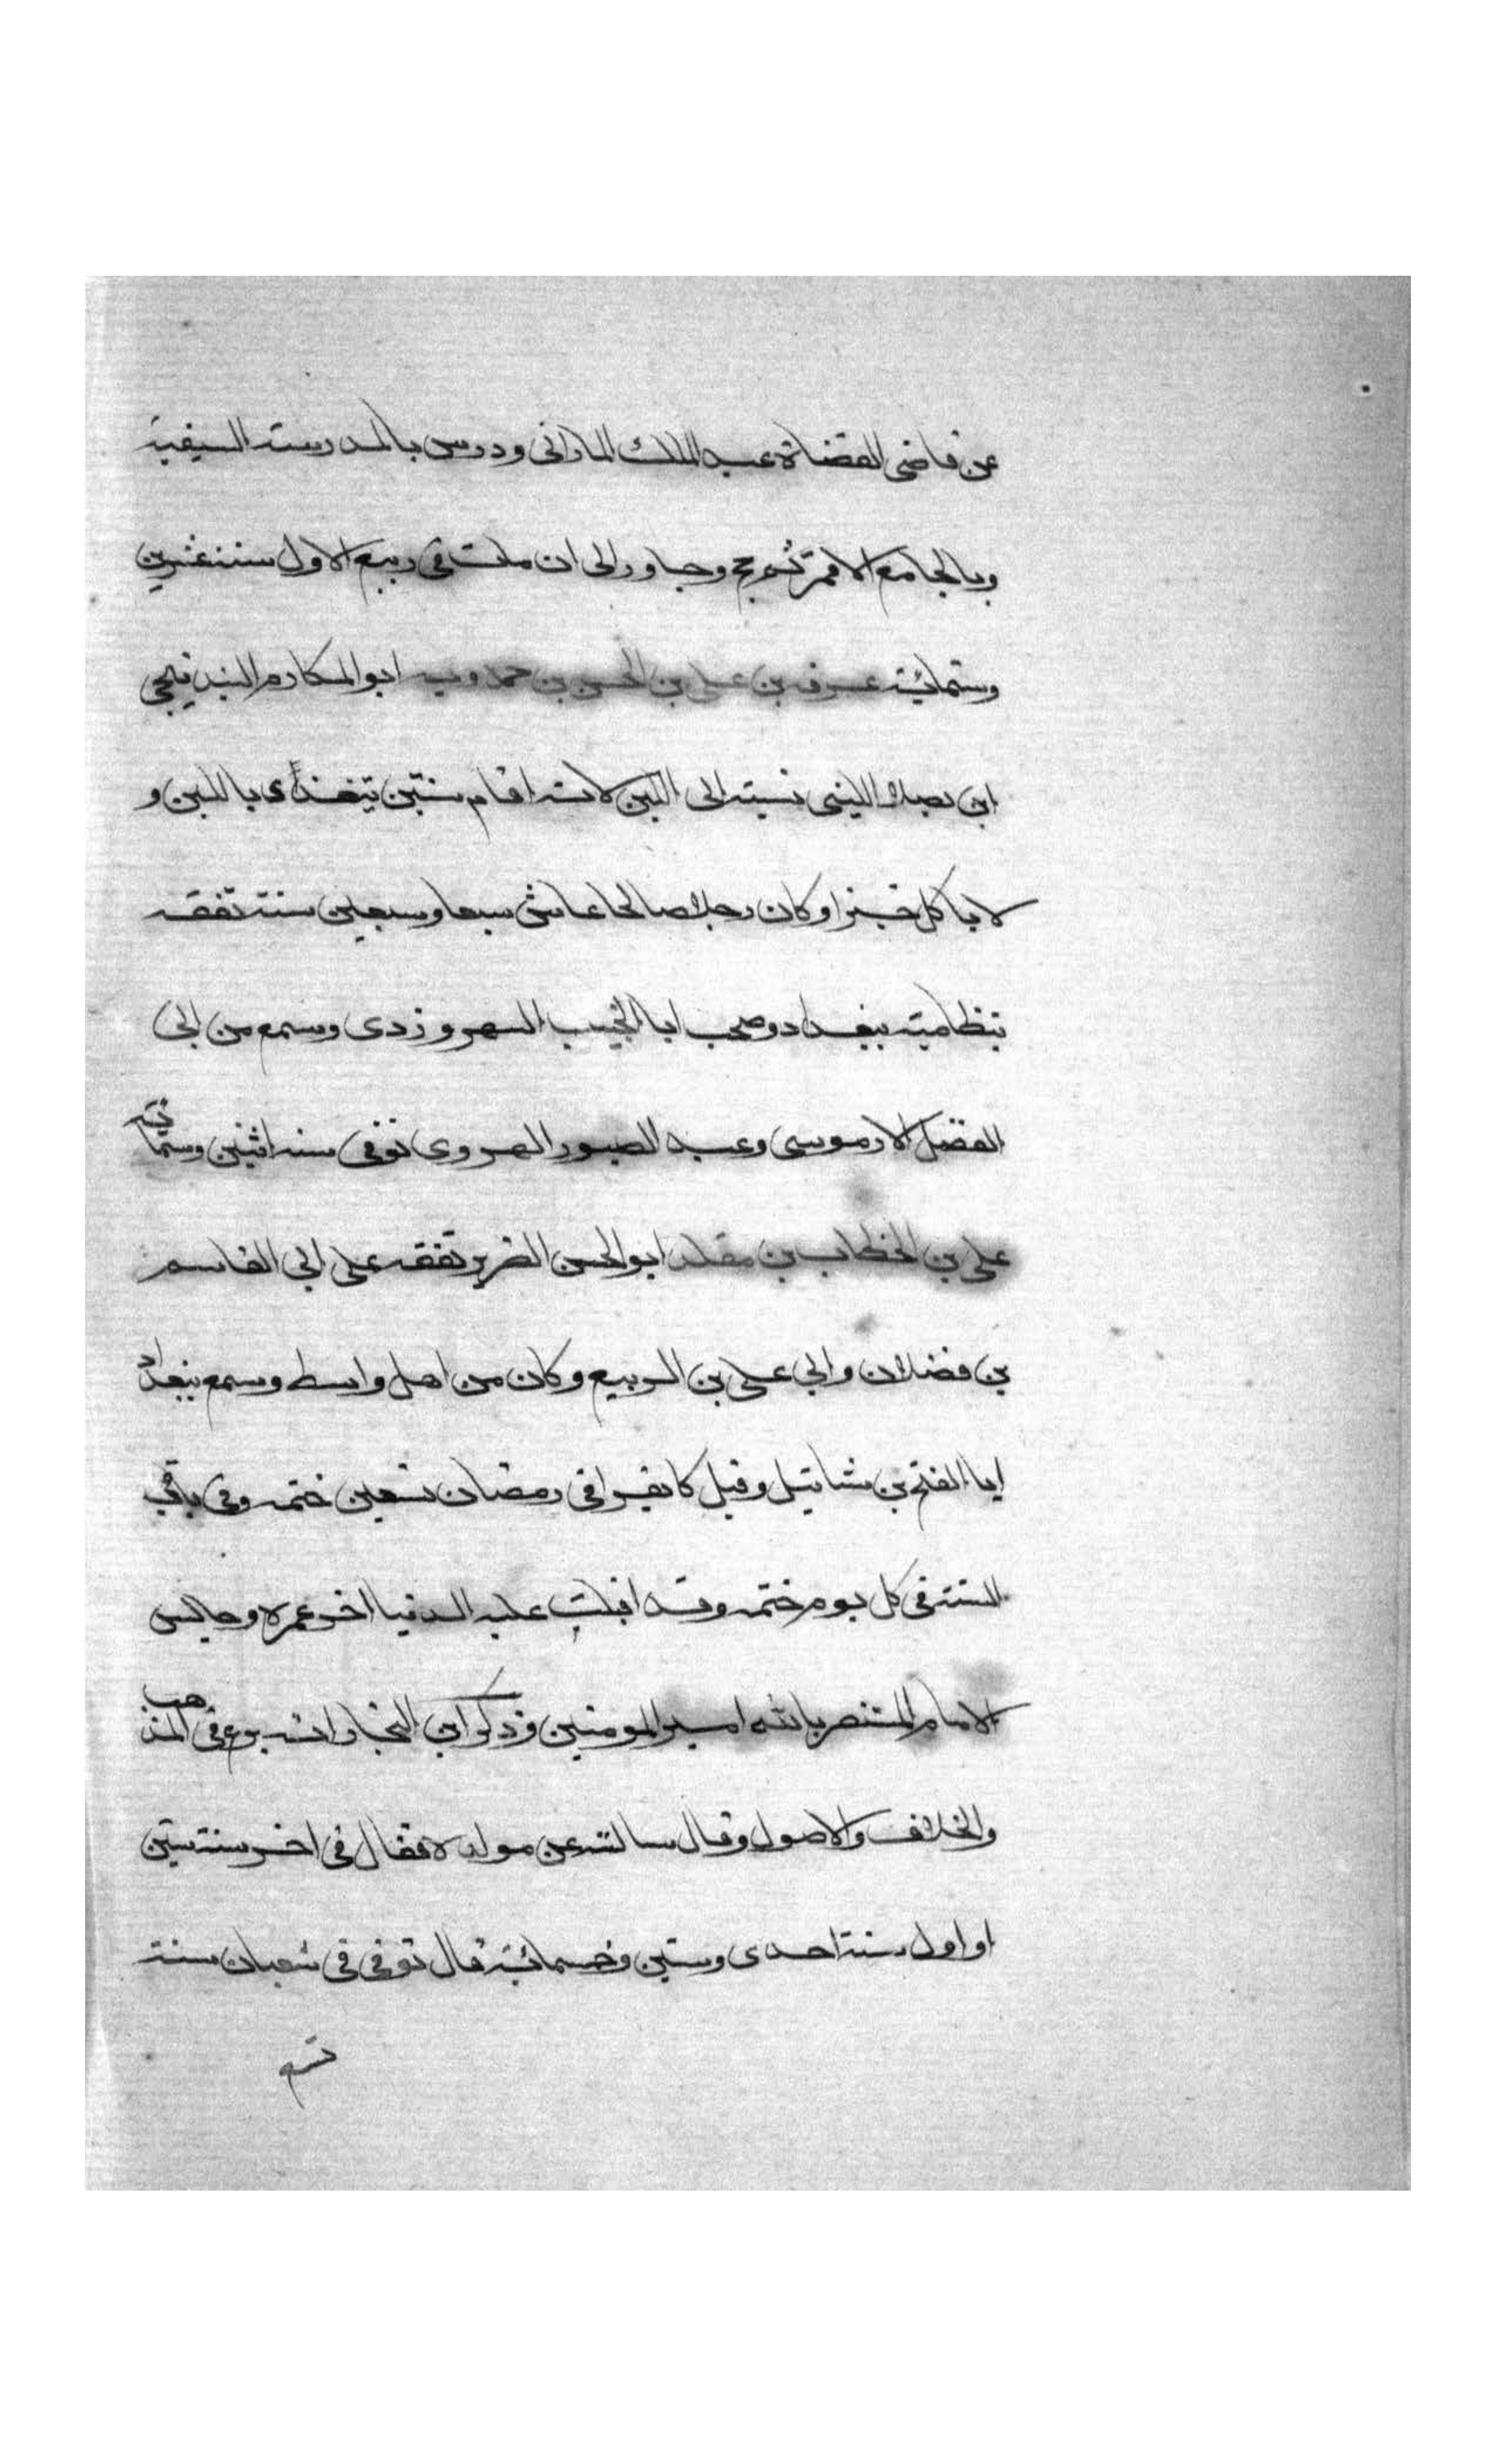 عن قاضى القضاة عبد الملك المارانى ودرس بالمدرسته السيفية
وبالجامع الاقمر ثم حج وجاور الى ان مات فى ربيع الاول سنة عشرين
وستمائية عسرفه بن على بن الحسن بن حمدويه ابو المكارم البندنيجى
ابن بصلا اللبنى نسبته الى اللبن لانه اقام سنتين يتغذى باللبن و
لا ياكل خبزا وكان رجلا صالحا عاش سبعا وسبعين سنة تفقه
بنظامية ببغداد وصحب ابا النجيب السهروزدى وسمع من ابى
الفضل الارموسى وعبد الصبور الهروى توفى سنه اثنين وستمائة
على بن الخطاب بن مقلد ابو الحسن الضرير تفقه على ابى القاسم
بن فضلان وابى على بن الربيع وكان من اهل واسط وسمع ببغداد
ابا الفتح بن شاتيل وقيل كا يقرا فى رمضان تسعين ختمه وفى باقى
السنة فى كل يوم ختمه وقد اقبلت عليه الدنيا اخر عمره وجالس
الامام المستنصر بالله امير المومنين وذكر ابن النجار انه برع فى المذهب
والخلاف والاصول وقال سالته عن مولده فقال فى اخر سنة ستين
او اول سنة احدى وستين وخمسمائية قال توفى فى شعبان سنة